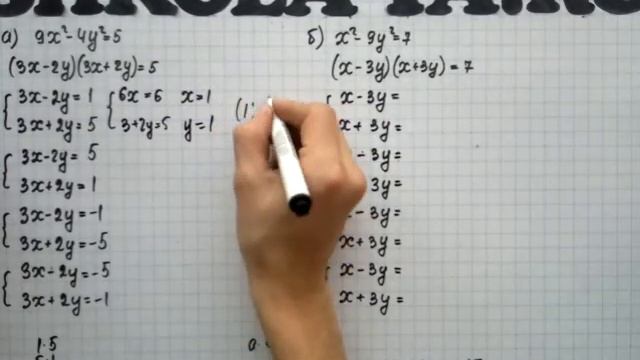 а) 9x²-4y²=5
(3x-2y)(3x+2y)=5
3x-2y=1 6x=6 x=1
3x+2y=5 3+2y=5 y=1
(1;
3x-2y=5
3x+2y=1
3x-2y=-1
3x+2y=-5
3x-2y=-5
3x+2y=-1
1·5
б) x²-9y²=7
(x-3y)(x+3y)=7
x-3y=
x+3y=
-3y=
3y=
-3y=
x+3y=
x-3y=
x+3y=